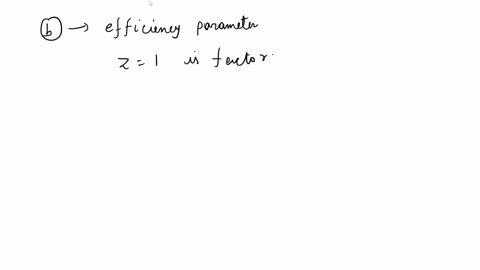 (b) → efficiency parameter
z = 1 is factor.